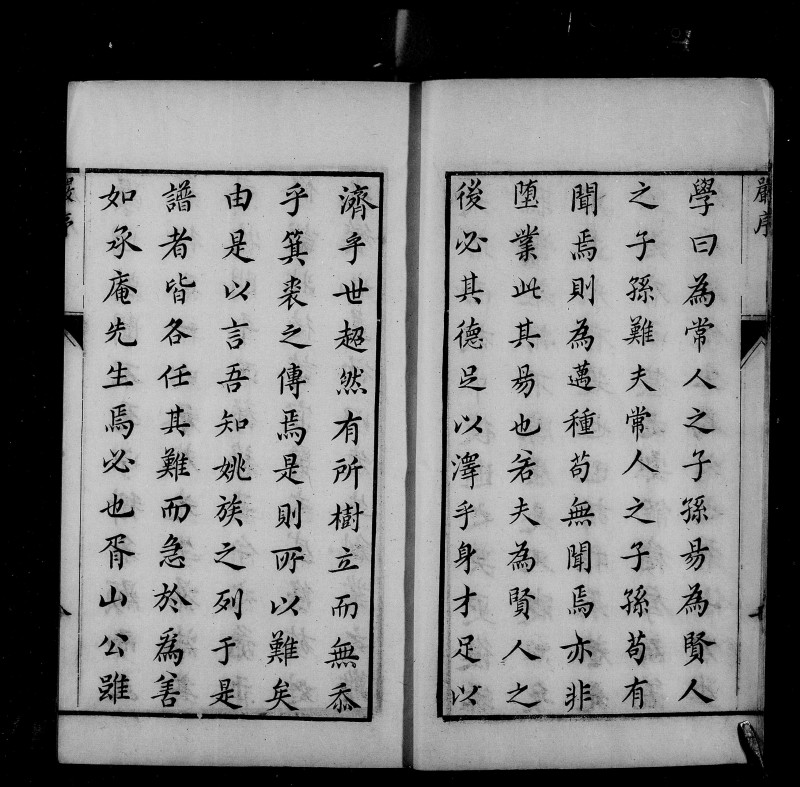 嚴序
學曰為常人之子孫易為賢人
之子孫難夫常人之子孫苟有
聞焉則為邁種苟無聞焉亦非
墮業此其易也若夫為賢人之
後必其德足以澤乎身才足以
七
濟乎世超然有所樹立而無忝
乎箕裘之傳焉是則所以難矣
由是以言吾知姚族之列于是
譜者皆各任其難而急於為善
如承庵先生焉必也胥山公雖
嚴序
八